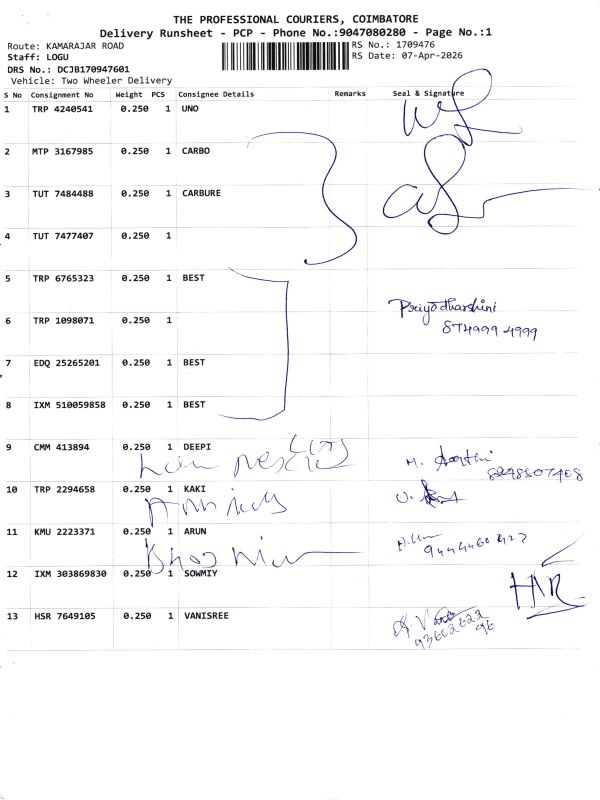 THE PROFESSIONAL COURIERS, COIMBATORE
Delivery Runsheet - PCP - Phone No.:9047080280 - Page No.:1
Route: KAMARAJAR ROAD RS No.: 1709476
Staff: LOGU RS Date: 07-Apr-2026
DRS No.: DCJB170947601
Vehicle: Two Wheeler Delivery
S No Consignment No Weight PCS Consignee Details Remarks Seal & Signature
1 TRP 4240541 0.250 1 UNO
2 MTP 3167985 0.250 1 CARBO
3 TUT 7484488 0.250 1 CARBURE
4 TUT 7477407 0.250 1
5 TRP 6765323 0.250 1 BEST
Priyadharshini
874999 4999
6 TRP 1098071 0.250 1
7 EDQ 25265201 0.250 1 BEST
8 IXM 510059858 0.250 1 BEST
9 CMM 413894 0.250 1 DEEPI
8248507408
10 TRP 2294658 0.250 1 KAKI
11 KMU 2223371 0.250 1 ARUN
12 IXM 303869830 0.250 1 SOWMIY
13 HSR 7649105 0.250 1 VANISREE